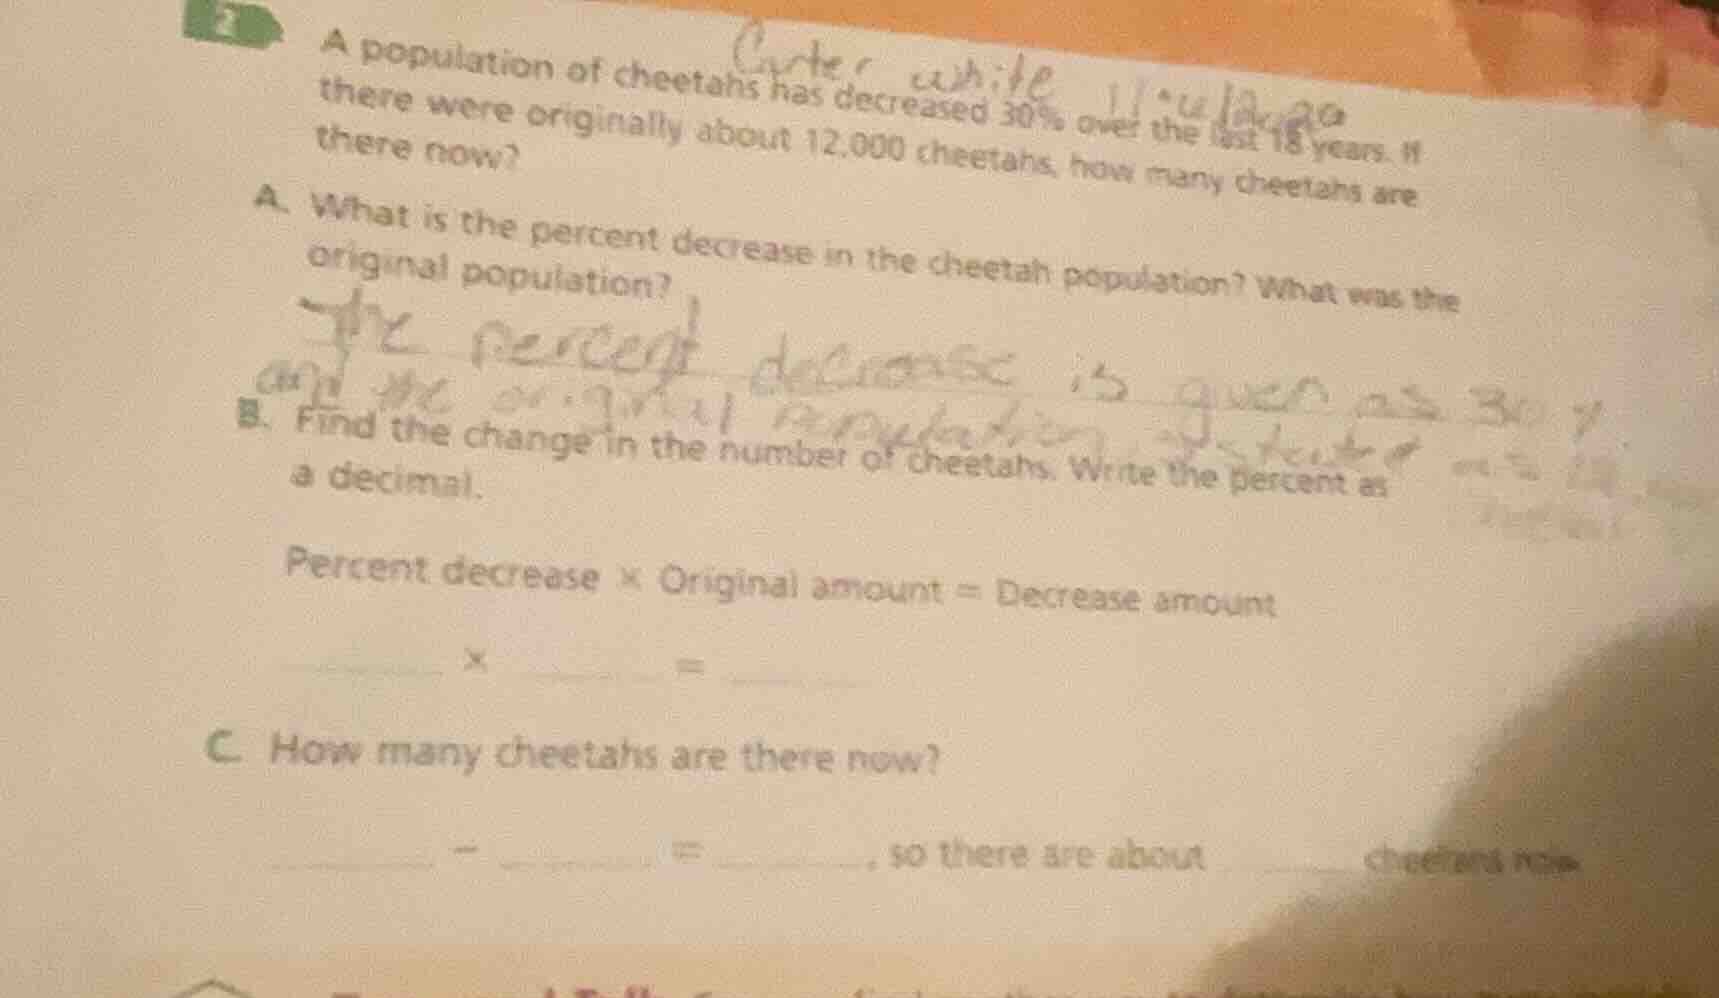 2
Carter white
A population of cheetahs has decreased 30% over the last 18 years. If
there were originally about 12,000 cheetahs, how many cheetahs are
there now?
A. What is the percent decrease in the cheetah population? What was the
original population?
The percent decrease is given as 30 %
and the original population
B. Find the change in the number of cheetahs. Write the percent as
a decimal.
Percent decrease × Original amount = Decrease amount
× =
C. How many cheetahs are there now?
- = , so there are about cheetahs now